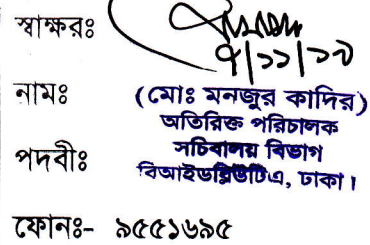 স্বাক্ষরঃ
৭/১১/১৩
নামঃ (মোঃ মনজুর কাদির)
অতিরিক্ত পরিচালক
পদবীঃ সচিবালয় বিভাগ
বিআইডব্লিউটিএ, ঢাকা।
ফোনঃ- ৯৫৫১৬৯৫